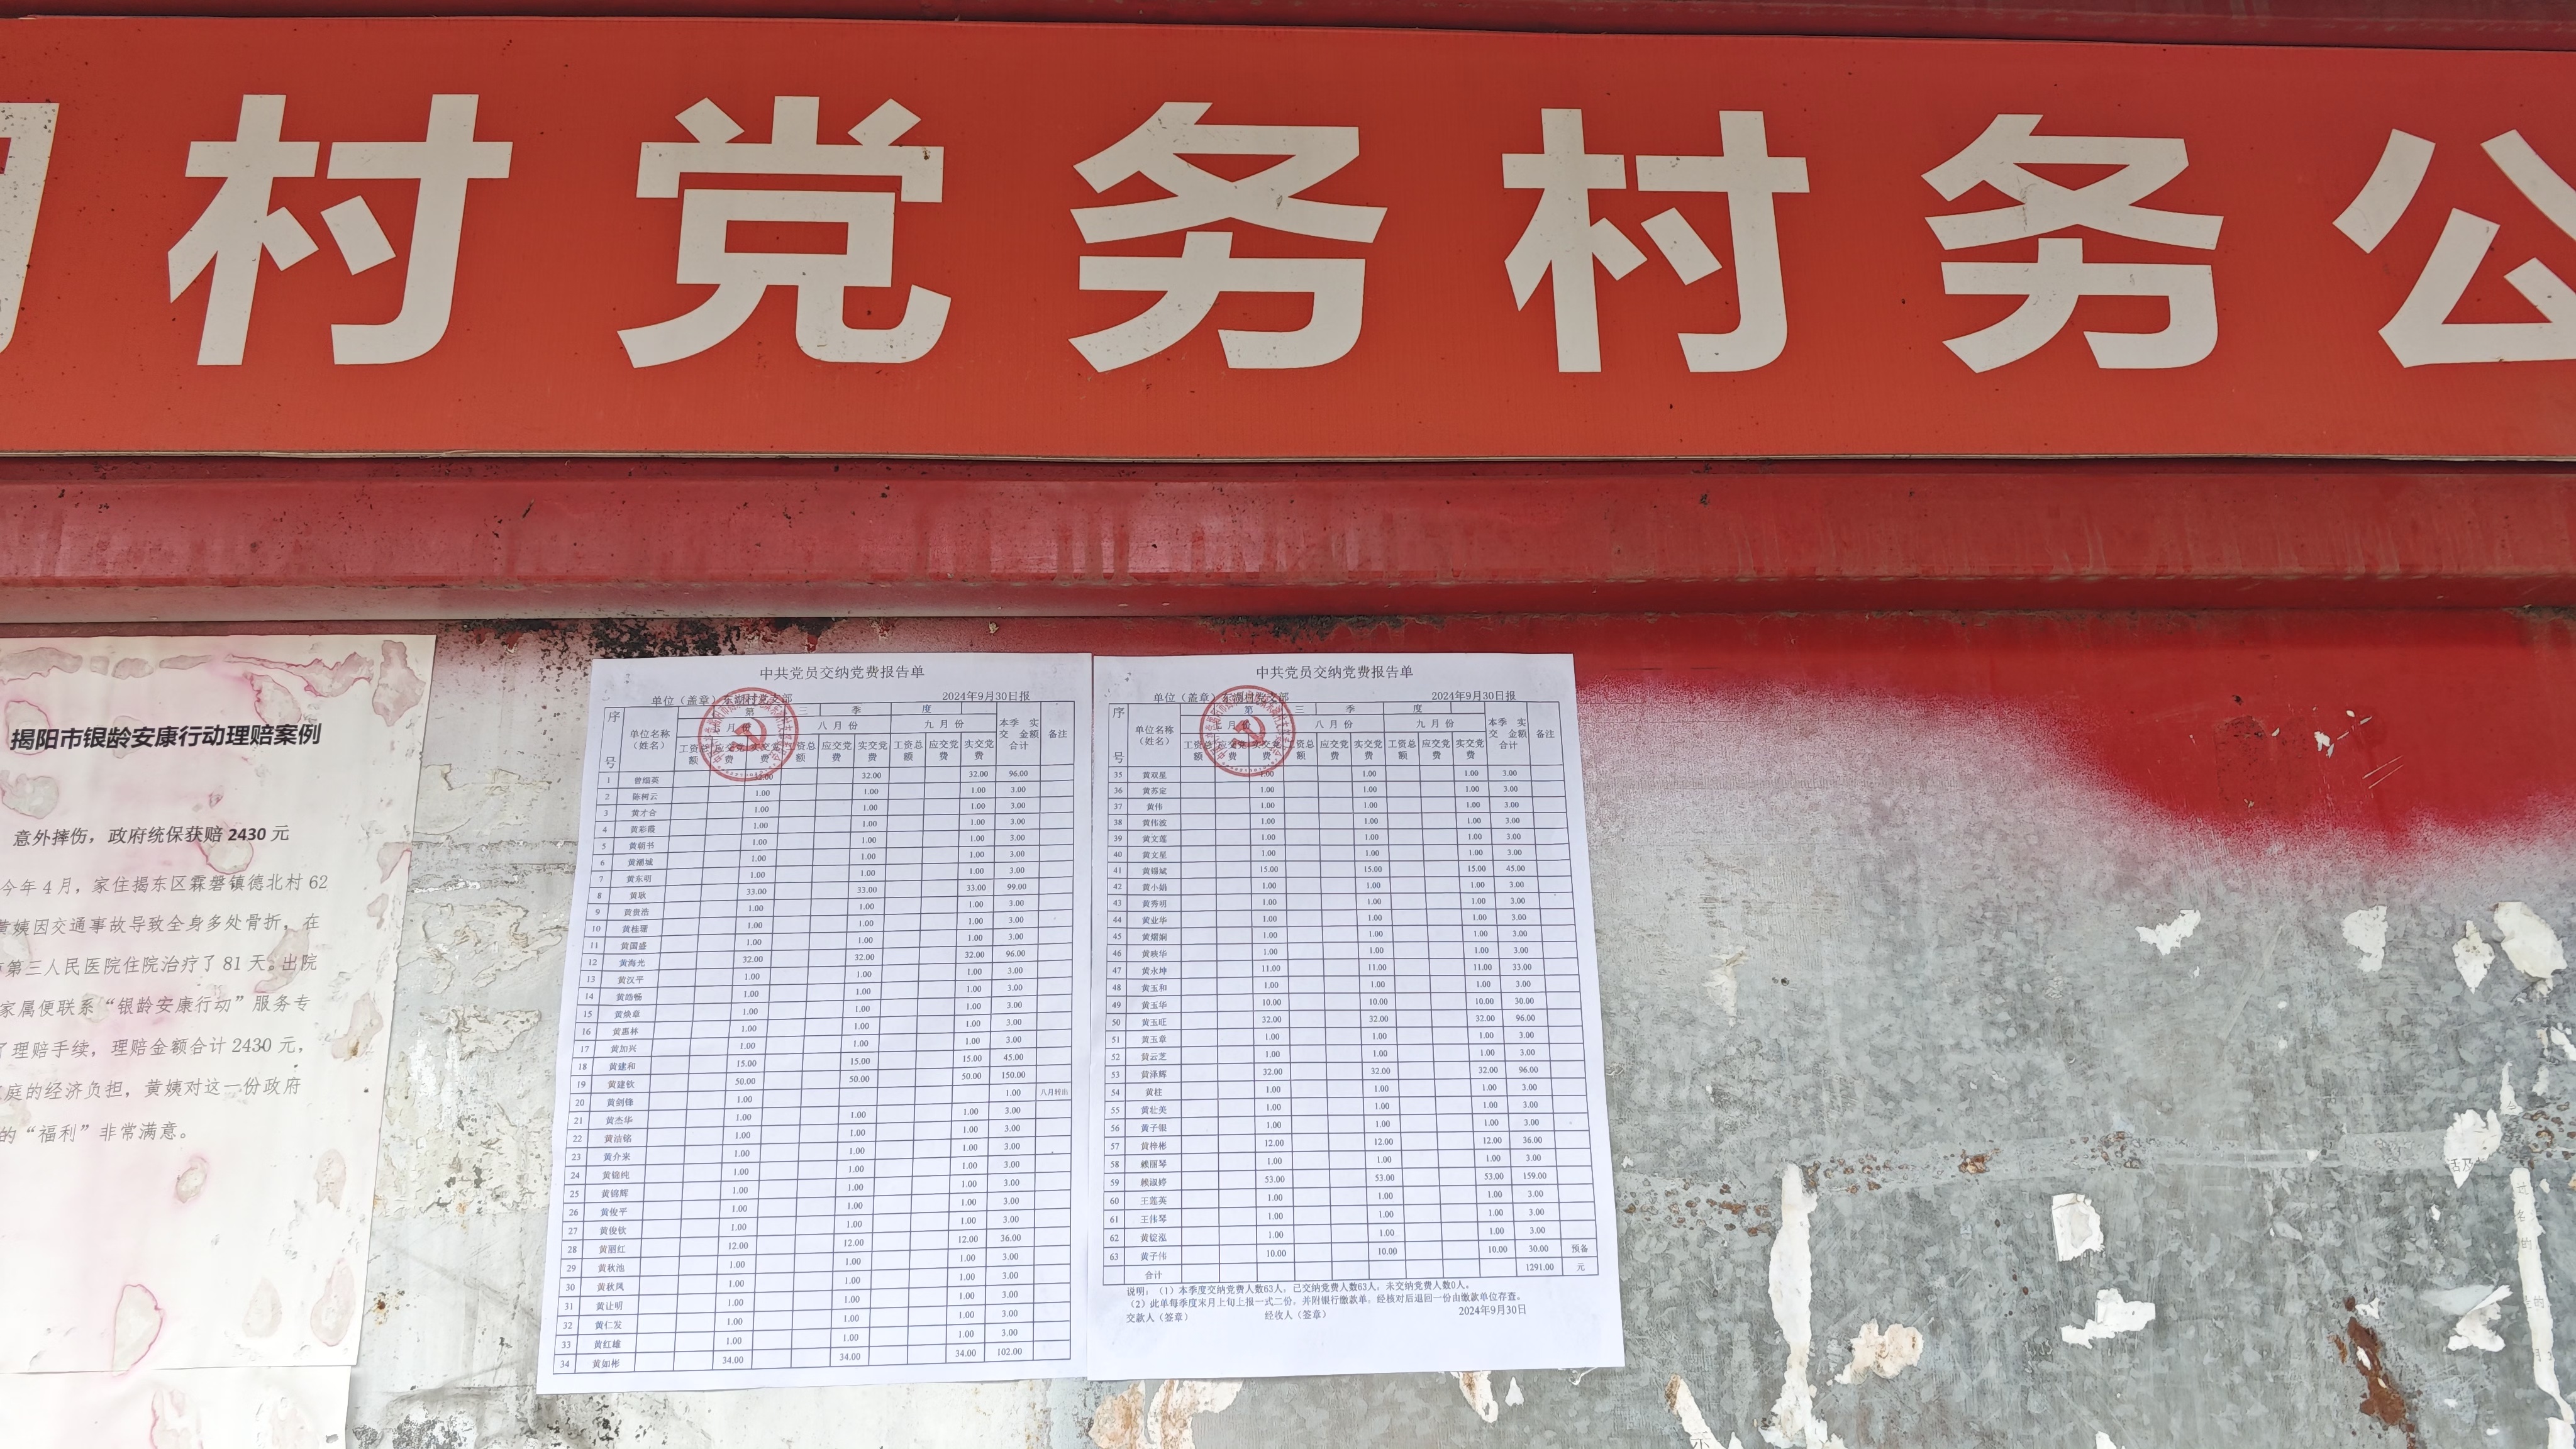 村党务村务公
揭阳市银龄安康行动理赔案例
意外摔伤，政府统保获赔 2430 元
今年 4 月，家住揭东区霖磐镇德北村 62
黄姨因交通事故导致全身多处骨折，在
第三人民医院住院治疗了 81 天。出院
家属便联系“银龄安康行动”服务专
了理赔手续，理赔金额合计 2430 元，
庭的经济负担，黄姨对这一份政府
的“福利”非常满意。
中共党员交纳党费报告单
单位（盖章） 2024年9月30日报
序号 单位名称（姓名） 第 三 季 度 本季 实交 金额合计 备注
月 份 八 月 份 九 月 份
工资总额 应交党费 实交党费 工资总额 应交党费 实交党费 工资总额 应交党费 实交党费
1 曾细英 32.00 32.00 96.00
2 陈树云 1.00 1.00 1.00 3.00
3 黄才合 1.00 1.00 1.00 3.00
4 黄彩霞 1.00 1.00 1.00 3.00
5 黄朝书 1.00 1.00 1.00 3.00
6 黄潮城 1.00 1.00 1.00 3.00
7 黄东明 1.00 1.00 1.00 3.00
8 黄耿 33.00 33.00 33.00 99.00
9 黄贵浩 1.00 1.00 1.00 3.00
10 黄桂珊 1.00 1.00 1.00 3.00
11 黄国盛 1.00 1.00 1.00 3.00
12 黄海光 32.00 32.00 32.00 96.00
13 黄汉平 1.00 1.00 1.00 3.00
14 黄皓畅 1.00 1.00 1.00 3.00
15 黄焕章 1.00 1.00 1.00 3.00
16 黄惠林 1.00 1.00 1.00 3.00
17 黄加兴 1.00 1.00 1.00 3.00
18 黄建和 15.00 15.00 15.00 45.00
19 黄建钦 50.00 50.00 50.00 150.00
20 黄剑锋 1.00 1.00 八月转出
21 黄杰华 1.00 1.00 1.00 3.00
22 黄洁铭 1.00 1.00 1.00 3.00
23 黄介来 1.00 1.00 1.00 3.00
24 黄锦纯 1.00 1.00 1.00 3.00
25 黄锦辉 1.00 1.00 1.00 3.00
26 黄俊平 1.00 1.00 1.00 3.00
27 黄俊钦 1.00 1.00 1.00 3.00
28 黄丽红 12.00 12.00 12.00 36.00
29 黄秋池 1.00 1.00 1.00 3.00
30 黄秋凤 1.00 1.00 1.00 3.00
31 黄让明 1.00 1.00 1.00 3.00
32 黄仁发 1.00 1.00 1.00 3.00
33 黄红雄 1.00 1.00 1.00 3.00
34 黄如彬 34.00 34.00 34.00 102.00
中共党员交纳党费报告单
单位（盖章） 2024年9月30日报
序号 单位名称（姓名） 第 三 季 度 本季 实交 金额合计 备注
月 份 八 月 份 九 月 份
工资总额 应交党费 实交党费 工资总额 应交党费 实交党费 工资总额 应交党费 实交党费
35 黄双星 1.00 1.00 1.00 3.00
36 黄苏定 1.00 1.00 1.00 3.00
37 黄伟 1.00 1.00 1.00 3.00
38 黄伟波 1.00 1.00 1.00 3.00
39 黄文莲 1.00 1.00 1.00 3.00
40 黄文星 1.00 1.00 1.00 3.00
41 黄锡斌 15.00 15.00 15.00 45.00
42 黄小娟 1.00 1.00 1.00 3.00
43 黄秀明 1.00 1.00 1.00 3.00
44 黄业华 1.00 1.00 1.00 3.00
45 黄熠娴 1.00 1.00 1.00 3.00
46 黄映华 1.00 1.00 1.00 3.00
47 黄永坤 11.00 11.00 11.00 33.00
48 黄玉和 1.00 1.00 1.00 3.00
49 黄玉华 10.00 10.00 10.00 30.00
50 黄玉旺 32.00 32.00 32.00 96.00
51 黄玉章 1.00 1.00 1.00 3.00
52 黄云芝 1.00 1.00 1.00 3.00
53 黄泽辉 32.00 32.00 32.00 96.00
54 黄柱 1.00 1.00 1.00 3.00
55 黄壮美 1.00 1.00 1.00 3.00
56 黄子银 1.00 1.00 1.00 3.00
57 黄梓彬 12.00 12.00 12.00 36.00
58 赖丽琴 1.00 1.00 1.00 3.00
59 赖淑婷 53.00 53.00 53.00 159.00
60 王莲英 1.00 1.00 1.00 3.00
61 王伟琴 1.00 1.00 1.00 3.00
62 黄锭泓 1.00 1.00 1.00 3.00
63 黄子伟 10.00 10.00 10.00 30.00 预备
合计 1291.00 元
说明：（1）本季度交纳党费人数63人，已交纳党费人数63人，未交纳党费人数0人。
（2）此单每季度末月上旬上报一式二份，并附银行缴款单，经核对后退回一份由缴款单位存查。
交款人（签章） 经收人（签章） 2024年9月30日